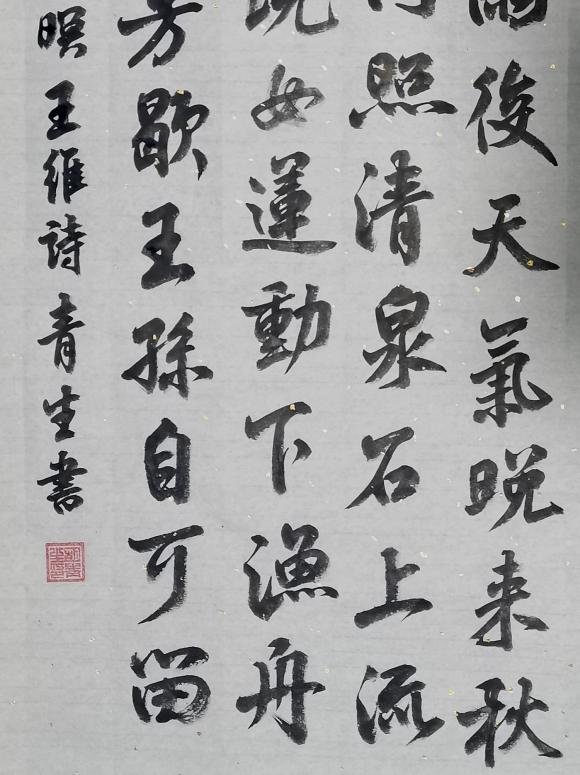 雨後天氣晚來秋
照清泉石上流
浣女蓮動下漁舟
芳歇王孫自可留
暝王維詩青生書